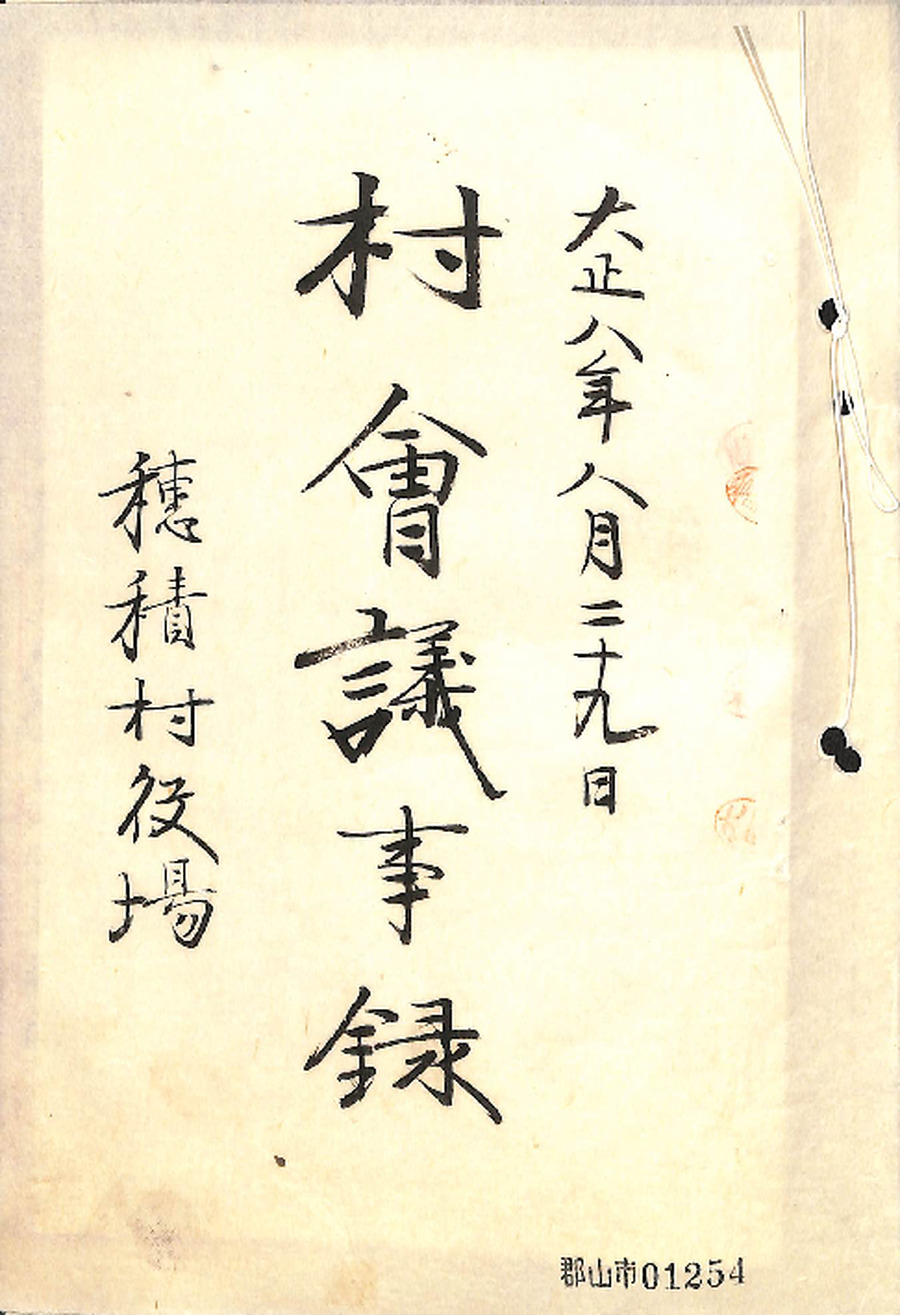 大正八年八月二十九日
村會議事録
穂積村役場
郡山市01254